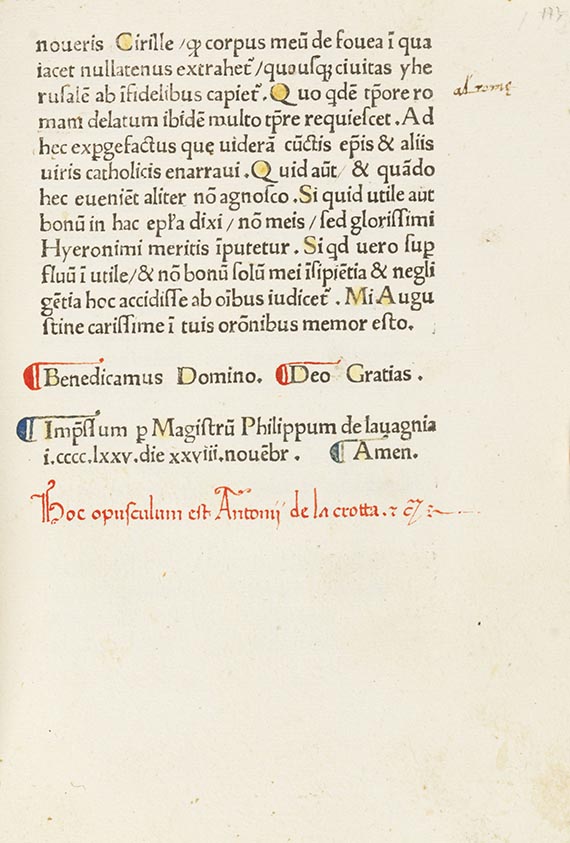 173
noueris Cirille / ꝙ corpus meū de fouea ī qua
iacet nullatenus extrahet᷑ / quousqꝫ ciuitas yhe
rusalē ab īfidelibus capiet᷑. Quo qdē tp̄ore ro
mam delatum ibidē multo tp̄re requiescet. Ad
hec exꝑgefactus quę uiderā cūctis ep̄is & aliis
uiris catholicis enarraui. Quid aūt / & quādo
hec eueniēt aliter nō agnosco. Si quid utile aut
bonū in hac ep̄ła dixi / nō meis / sed gloriſſimi
Hyeronimi meritis īputetur. Si qd uero suꝑ
fluū ī utile / & nō bonū solū mei īsipiētia & negli
gētia hoc accidisse ab oībus iudicet᷑. Mi Augu
stine carissime ī tuis orōnibus memor esto.
al rome
¶ Benedicamus Domino. ¶ Deo Gratias.
¶ Imp̄ssum ꝑ Magistrū Philippum de lauagnia
i.cccc.lxxv.die xxviii.nouēbr. ¶ Amen.
Hoc opusculum est Antonij de la crotta. ⁊ c̄